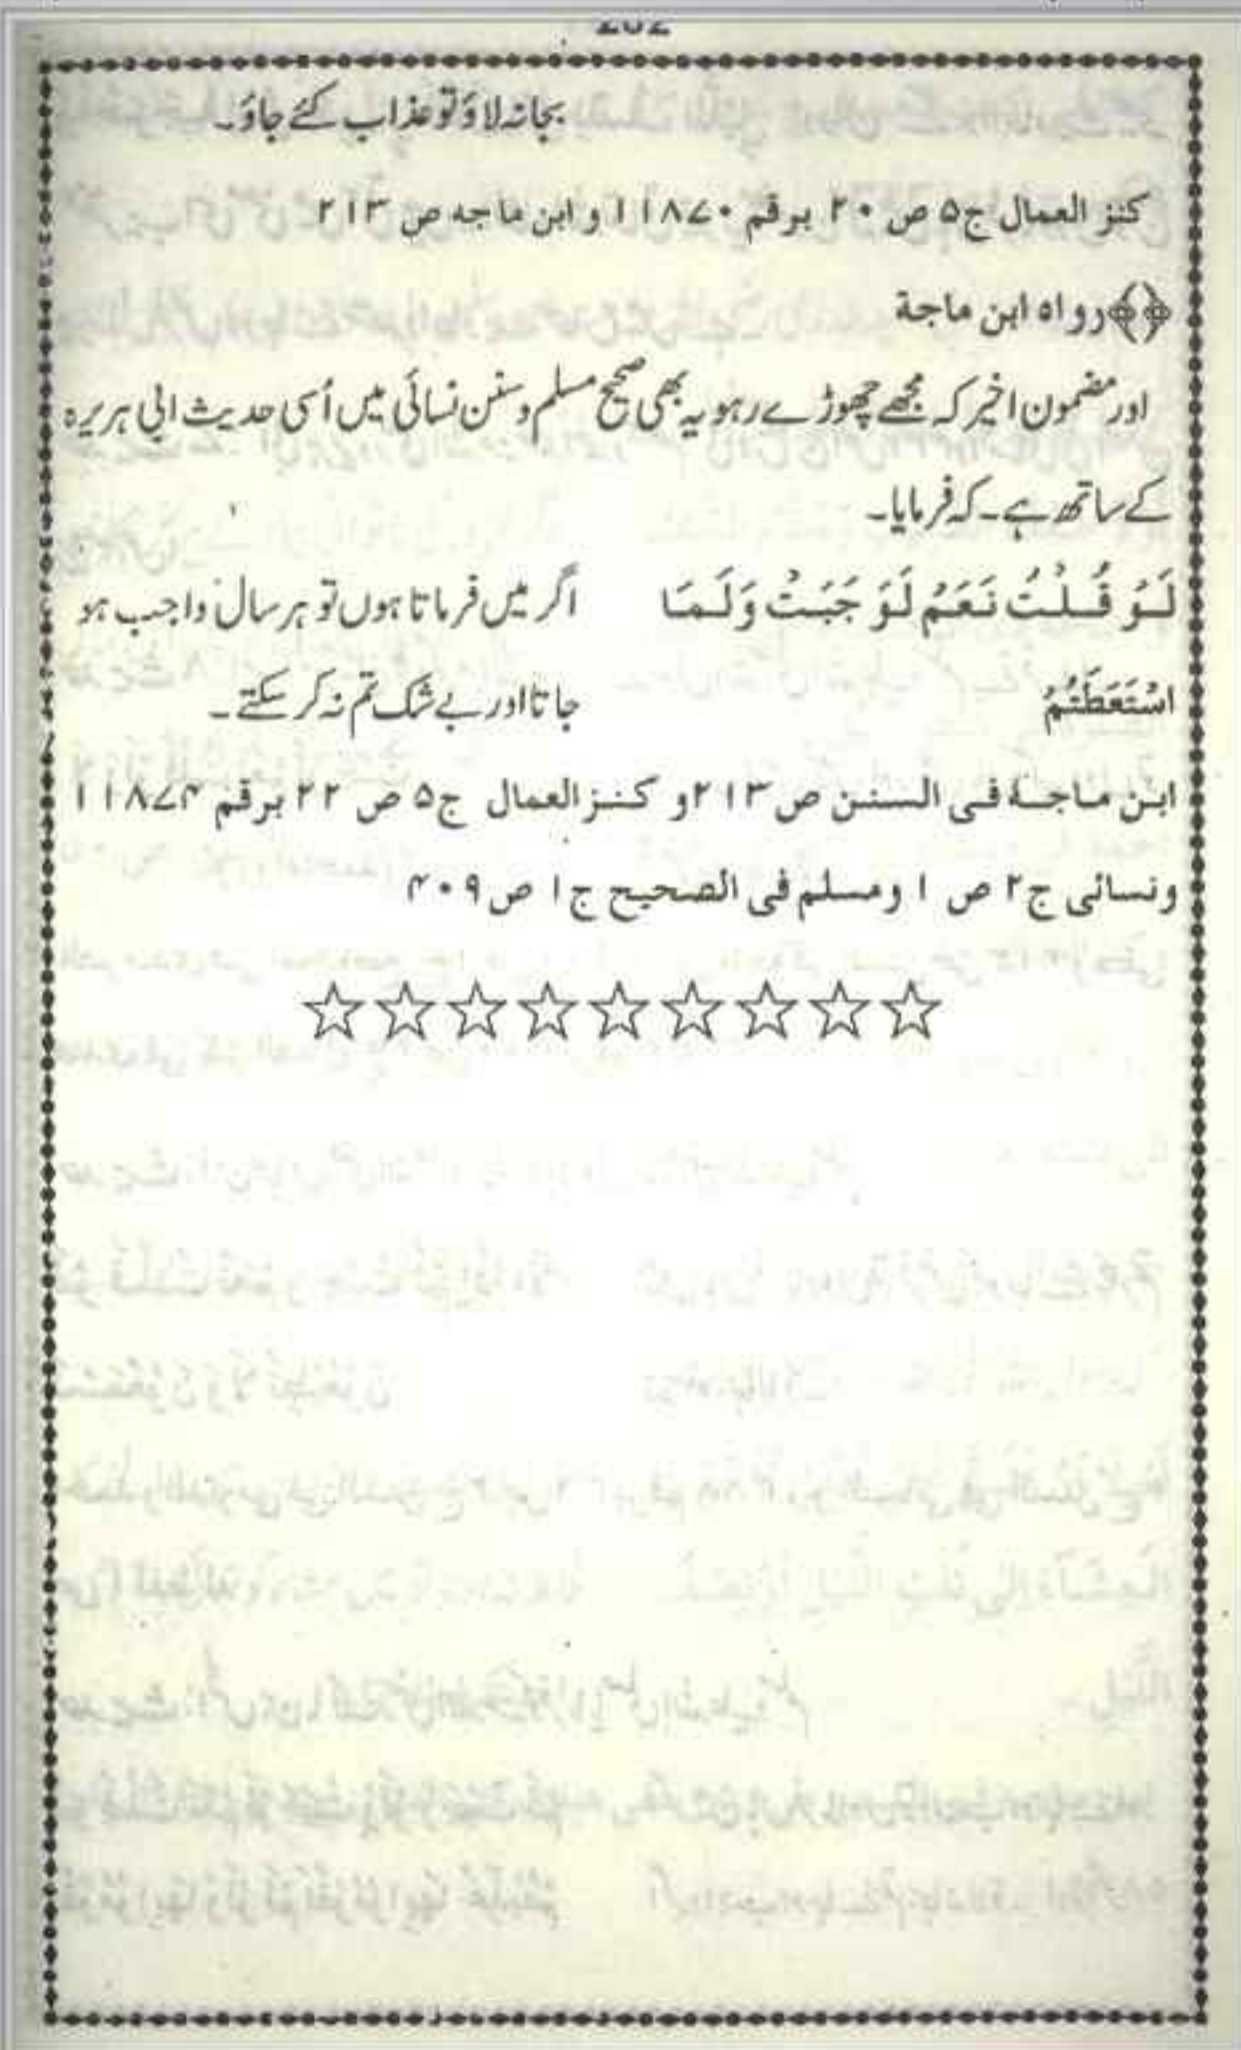 بجانہ لاؤ تو عذاب کئے جاؤ۔
کنز العمال ج۵ ص ۲۰ برقم ۱۱۸۷۰ و ابن ماجہ ص ۲۱۳
﴿﴾رواہ ابن ماجة
اور مضمون اخیر کہ مجھے چھوڑے رہو یہ بھی صحیح مسلم و سنن نسائی میں اُسی حدیث ابی ہریرہ
کے ساتھ ہے۔ کہ فرمایا۔
لَوْ قُلْتُ نَعَمْ لَوَجَبَتْ وَلَمَا اگر میں فرماتا ہوں تو ہر سال واجب ہو
اسْتَعَطَتُمْ جاتا اور بے شک تم نہ کر سکتے۔
ابن ماجة فی السنن ص ۲۱۳ و کنز العمال ج۵ ص ۲۲ برقم ۱۱۸۷۴
ونسائی ج۲ ص ۱ ومسلم فی الصحیح ج۱ ص ۴۰۹